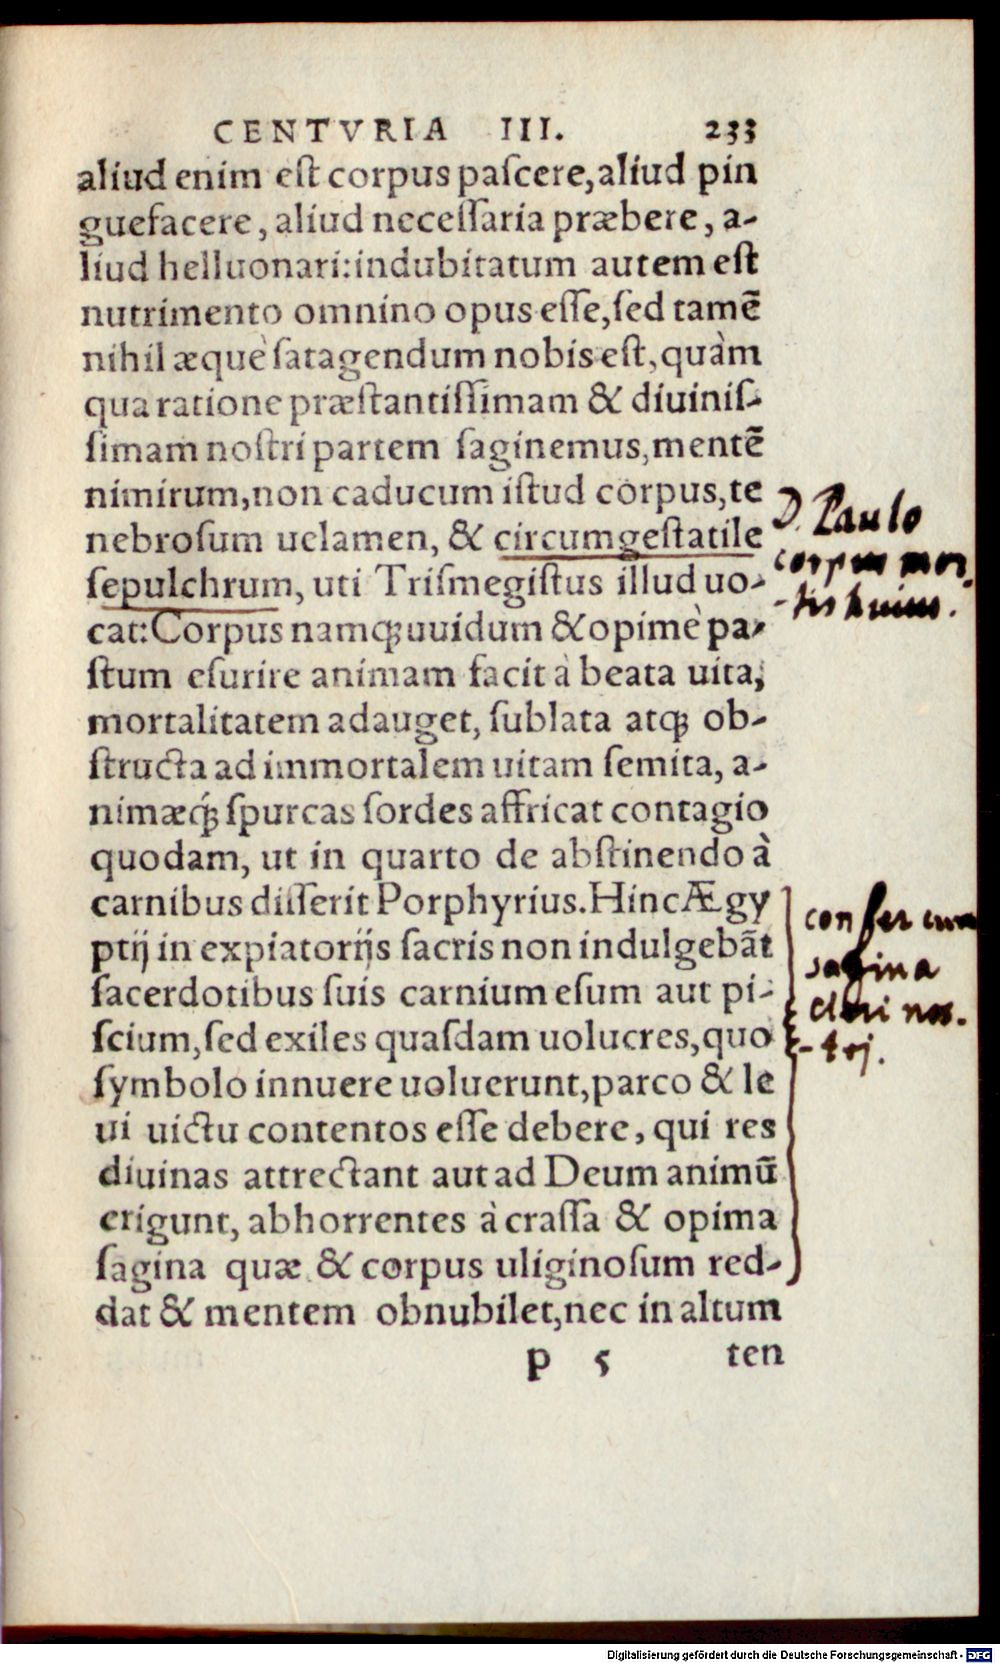 CENTVRIA III. 233
aliud enim est corpus pascere, aliud pin
guefacere, aliud necessaria præbere, a-
liud helluonari: indubitatum autem est
nutrimento omnino opus esse, sed tamē
nihil æquè satagendum nobis est, quàm
qua ratione præstantissimam & diuinis-
simam nostri partem saginemus, mentē
nimirum, non caducum istud corpus, te
nebrosum uelamen, & circumgestatile
sepulchrum, uti Trismegistus illud uo-
cat: Corpus namq; uuidum & opimè pa-
stum esurire animam facit à beata uita,
mortalitatem adauget, sublata atq; ob-
structa ad immortalem uitam semita, a-
nimæq; spurcas sordes affricat contagio
quodam, ut in quarto de abstinendo à
carnibus disserit Porphyrius. Hinc Ægy
ptij in expiatorijs sacris non indulgebāt
sacerdotibus suis carnium esum aut pi-
scium, sed exiles quasdam uolucres, quo
symbolo innuere uoluerunt, parco & le
ui uictu contentos esse debere, qui res
diuinas attrectant aut ad Deum animū
erigunt, abhorrentes à crassa & opima
sagina quæ & corpus uliginosum red-
dat & mentem obnubilet, nec in altum
p 5 ten
D. Paulo
corpus mor
-tis huius.
confer cum
sagina
cleri nos.
-trj.
Digitalisierung gefördert durch die Deutsche Forschungsgemeinschaft - DFG